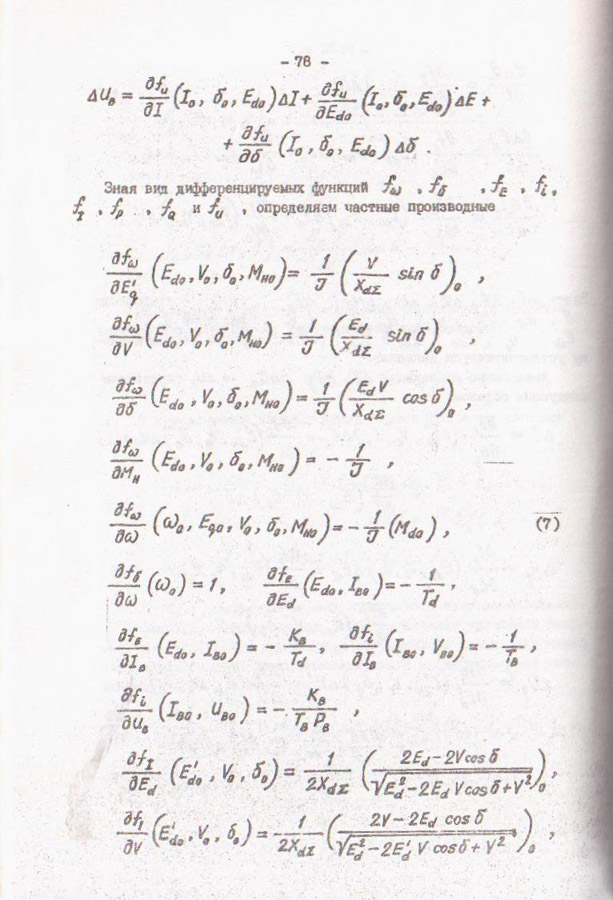 - 78 -
ΔU_в = ∂f_u/∂I (I_o, δ_o, E_do)ΔI + ∂f_u/∂E_do (I_o, δ_o, E_do)ΔE +
+ ∂f_u/∂δ (I_o, δ_o, E_do) Δδ .
Зная вид дифференцируемых функций f_ω , f_δ , f_E , f_i ,
f_I , f_P , f_Q и f_u , определяем частные производные
∂f_ω/∂E'_q (E_do, V_o, δ_o, M_но) = 1/J (V/X_dΣ sin δ)_o ,
∂f_ω/∂V (E_do, V_o, δ_o, M_но) = 1/J (E_d/X_dΣ sin δ)_o ,
∂f_ω/∂δ (E_do, V_o, δ_o, M_но) = 1/J (E_d V/X_dΣ cos δ)_o ,
∂f_ω/∂M_н (E_do, V_o, δ_o, M_но) = - 1/J ,
∂f_ω/∂ω (ω_o, E_qo, V_o, δ_o, M_но) = - 1/J (M_do) , (7)
∂f_δ/∂ω (ω_o) = 1, ∂f_E/∂E_d (E_do, I_во) = - 1/T_d ,
∂f_E/∂I_в (E_do, I_во) = - K_в/T_d , ∂f_i/∂I_в (I_во, V_во) = - 1/T_в ,
∂f_i/∂U_в (I_во, U_во) = - K_в/(T_в P_в) ,
∂f_I/∂E_d (E'_do, V_o, δ_o) = 1/(2X_dΣ) ((2E_d - 2V cos δ)/√(E_d² - 2E_d V cos δ + V²))_o ,
∂f_I/∂V (E'_do, V_o, δ_o) = - 1/(2X_dΣ) ((2V - 2E_d cos δ)/√(E_d² - 2E'_d V cos δ + V²))_o ,